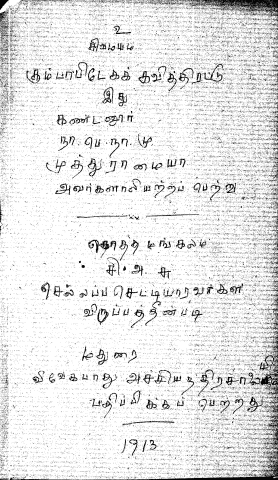 உ
சிவமயம்
கும்பாபிடேகக் கவித்திரட்டு
இது
கண்டனூர்
நா. பெ. நா. மு.
முத்துராமையா
அவர்களாலியற்றப் பெற்று
கொத்தமங்கலம்
சி. அ. சு
செல்லப்பசெட்டியாரவர்கள்
விருப்பத்தின்படி
மதுரை
விவேகபாநு அச்சியந்திரசாலையில்
பதிப்பிக்கப் பெற்றது
1913